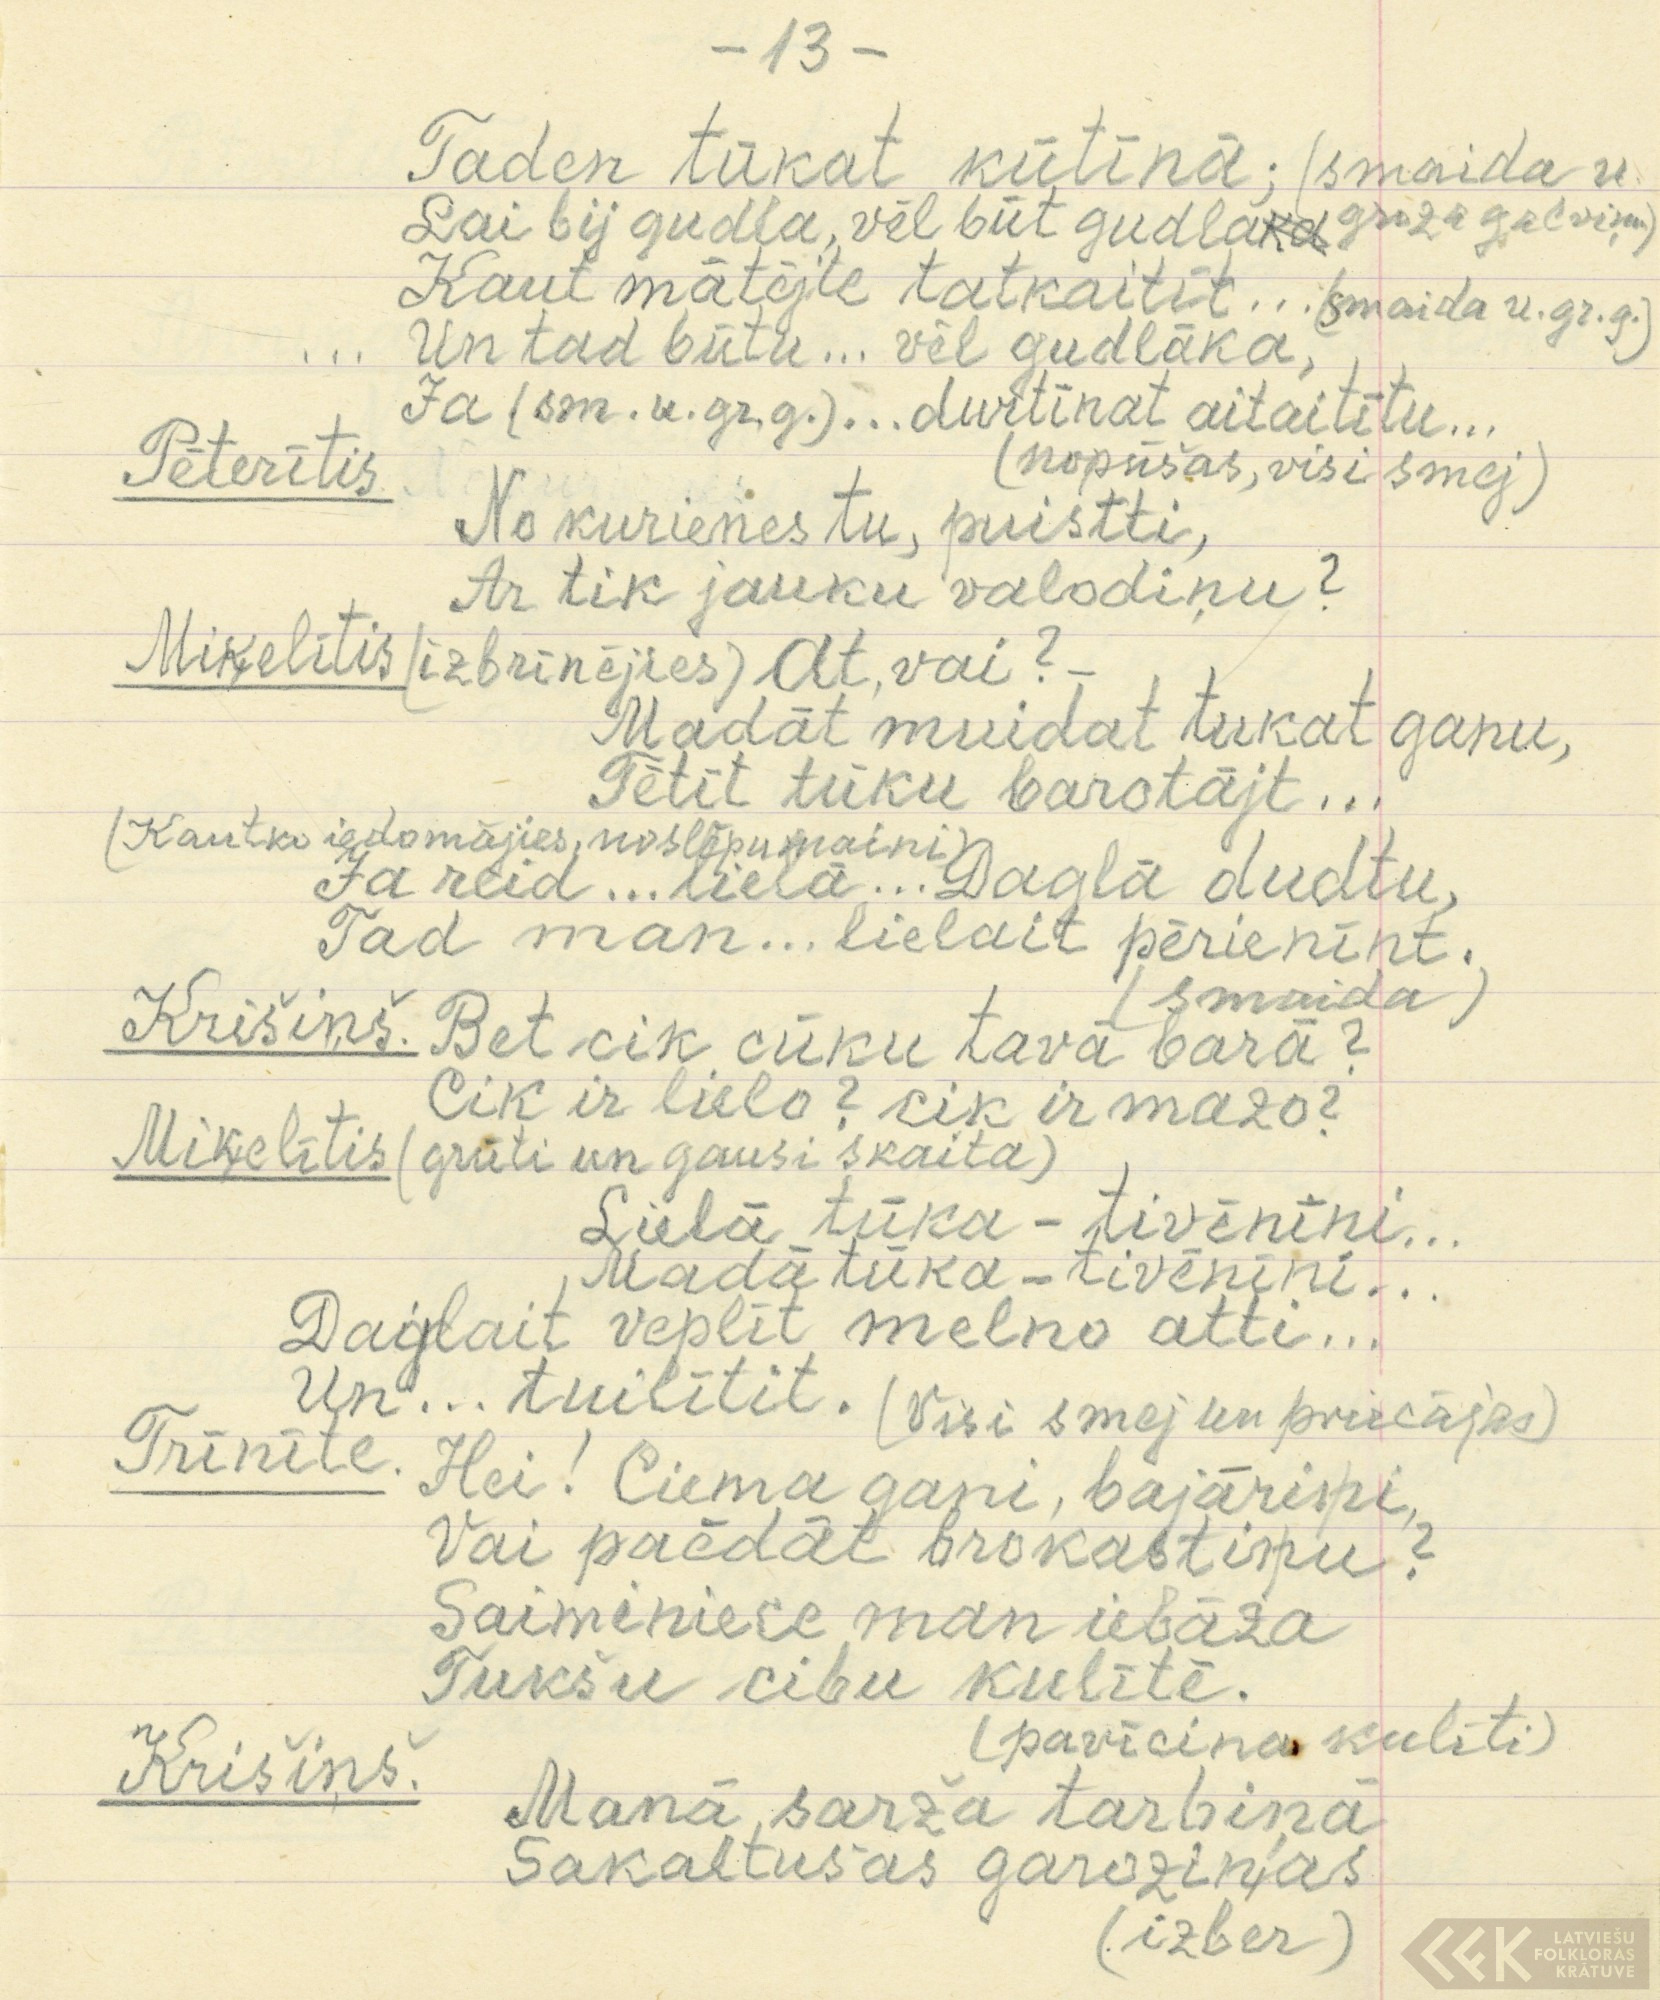 - 13 -
Taden tūkat kūtīnā; (smaida u.
Lai bij gudla, vēl būt gudla groza galviņu)
Kaut mātējte tatkaitīt... (smaida u. gr. g.)
... Un tad būtu... vēl gudlāka,
Ja (sm. u. gr. g.)... durtīnat aitaitītu...
(nopūšas, visi smej)
Pēterītis
No kurienes tu, puistti,
Ar tik jauku valodiņu?
Miķelītis (izbrīnējies) At, vai? -
Madāt muidat tukat ganu,
Tētīt tūku barotājt...
(Kautko iedomājies, noslēpumaini)
Ja reid... lielā... Daglā dudtu,
Tad man... lielait pērienint.
(smaida)
Krišiņš. Bet cik cūku tavā barā?
Cik ir lielo? cik ir mazo?
Miķelītis (grūti un gausi skaita)
Lielā tūka - tivēnīni...
Madā tūka - tivēnīni...
Daglait veplīt melno atti...
Un... tuilītit. (Visi smej un priecājas)
Trīnīte. Hei! Ciema gani, bajāriņi,
Vai paēdāt brokastiņu?
Saiminiece man iebāza
Tukšu cibu kulītē.
(pavīcina kulīti)
Krišiņš.
Manā sarža tarbiņā
Sakaltušas garoziņas
(izber)
LATVIEŠU
FOLKLORAS
KRĀTUVE